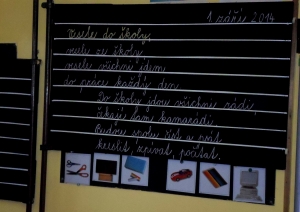 1. září 2014
Vesele do školy,
vesele ze školy,
vesele všichni jdem
do práce každý den.
Do školy jdou všichni rádi,
čekají tam kamarádi.
Budou spolu číst a psát
kreslit, zpívat, počítat.